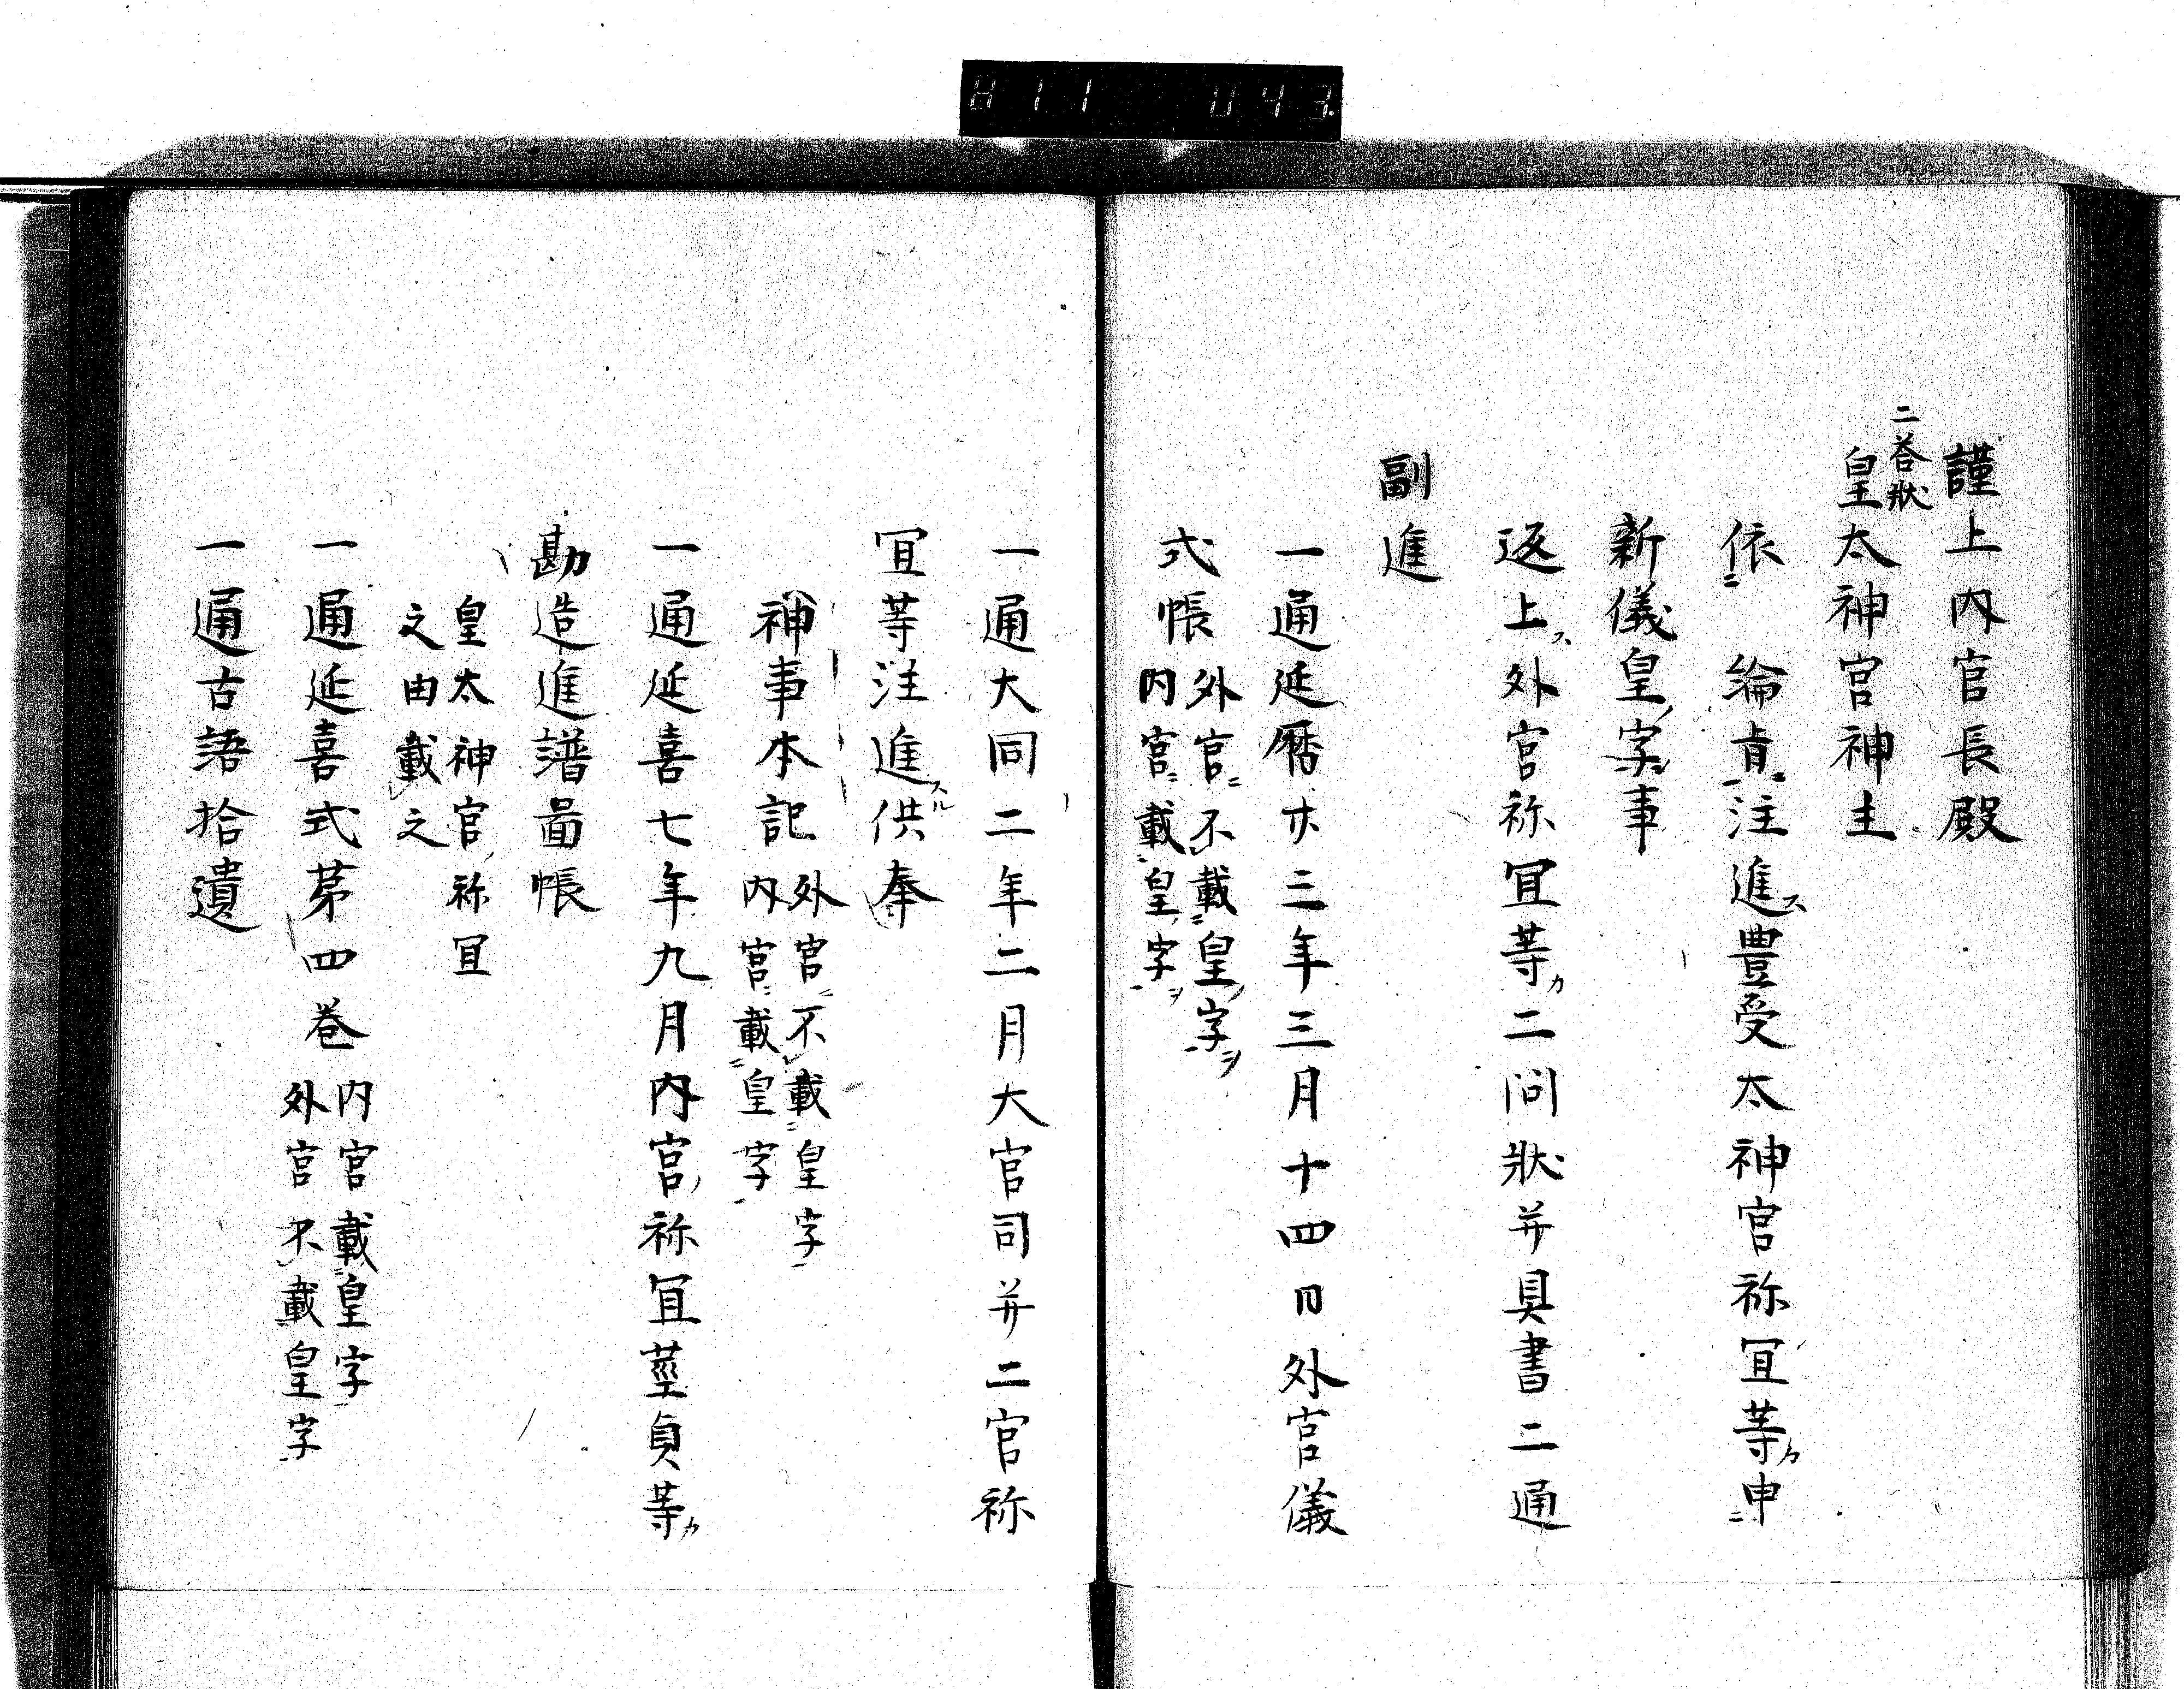 811 043
謹上内宮長殿
二答狀
皇太神宮神主
依 綸旨注進ス豊受太神宮祢冝等カ申
新儀皇字事
返上ス外宮祢冝等カ二問狀并具書二通
副進
一通延暦廿三年三月十四日外宮儀
式帳
外宮ニ不載皇字ヲ
内宮ニ載皇字ヲ
一通大同二年二月大宮司并二宮祢
冝等注進スル供奉
神事本記
外宮ニ不載皇字
内宮ニ載皇字
一通延喜七年九月内宮祢冝莖貞等カ
勘造進譜啚帳
皇太神宮祢冝
之由載之
一通延喜式苐四卷
内宮載皇字
外宮不載皇字
一通古語拾遺